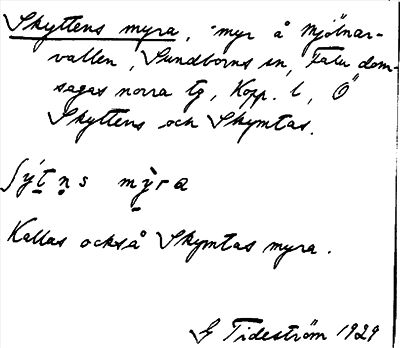 Skyttens myra, myr å Mjölnar-
vallen, Sundborns sn, Falu dom-
sagas norra tg, Kopp. l, Ö
Skyttens och Skymtas.
ʃýt̠n̠s mỳra
Kallas också Skymtas myra.
G Tideström 1929